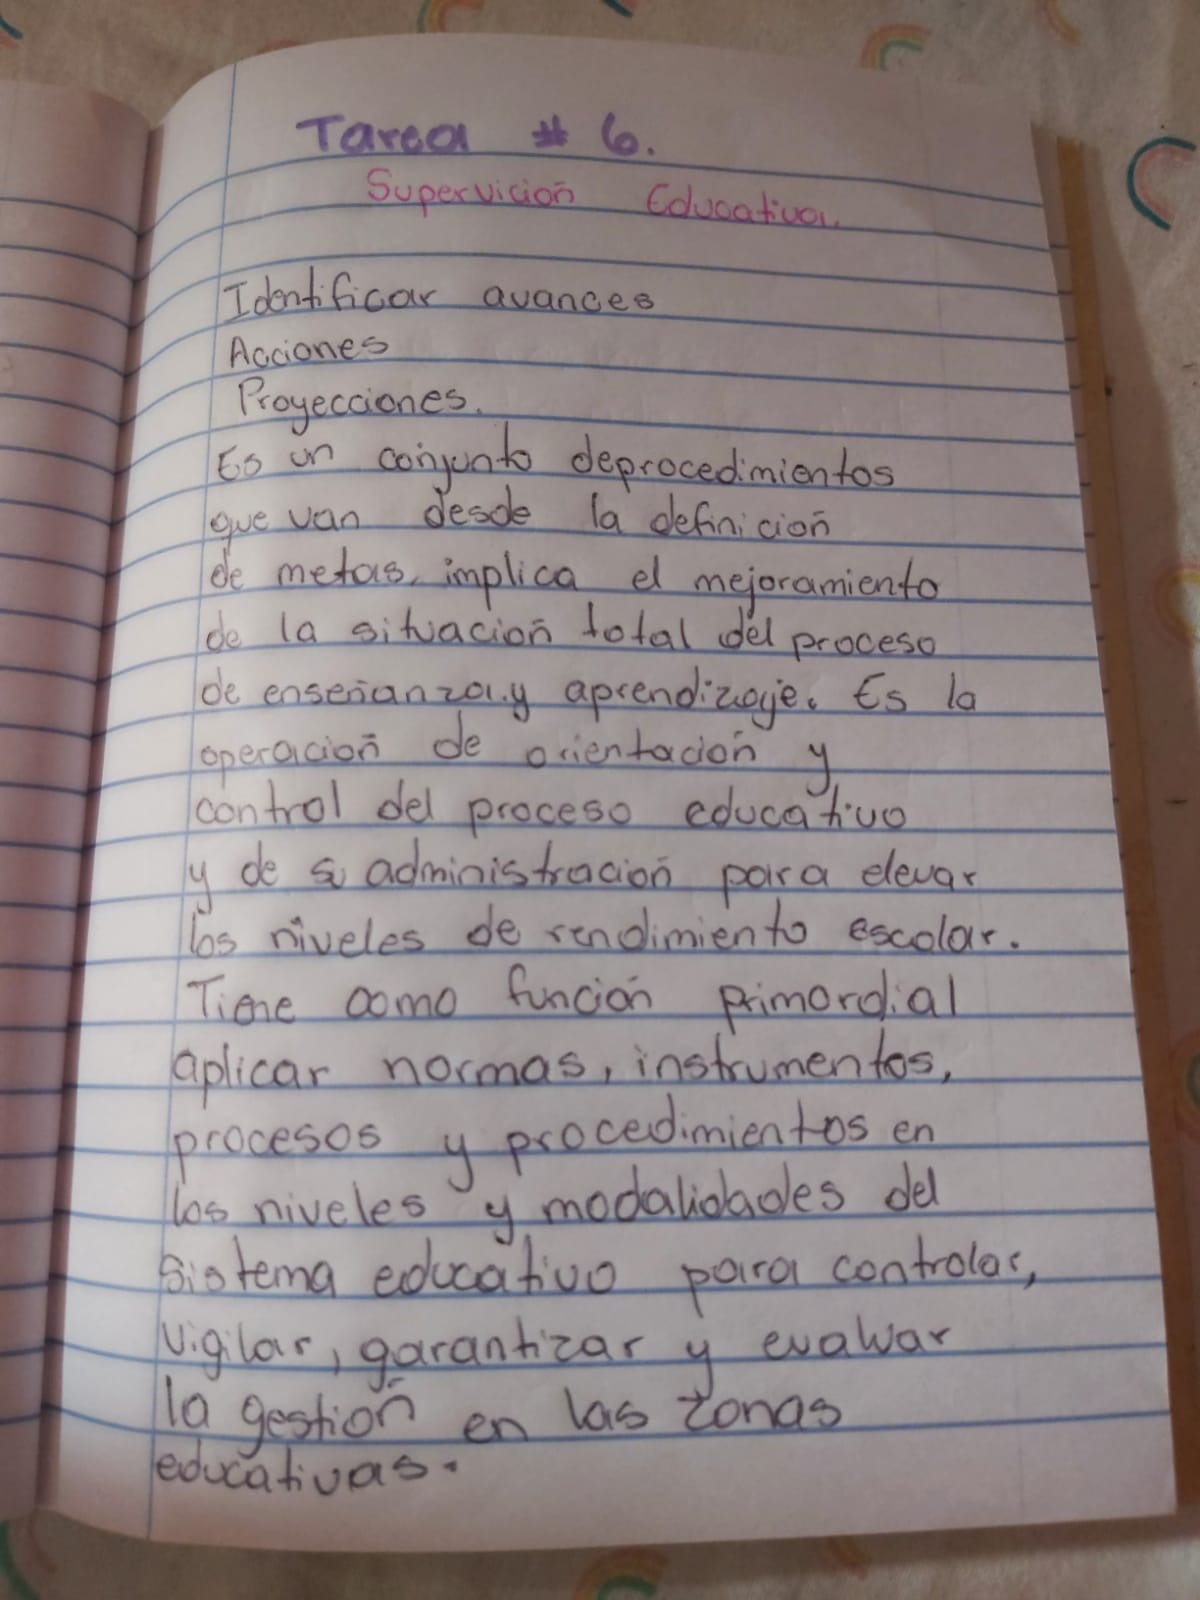 Tarea # 6.
Supervición Educativa.
Identificar avances
Acciones
Proyecciones.
Es un conjunto deprocedimientos
que van desde la definición
de metas, implica el mejoramiento
de la situación total del proceso
de enseñanza.y aprendizaje. Es la
operación de orientación y
control del proceso educativo
y de su administración para elevar
los niveles de rendimiento escolar.
Tiene como función primordial
aplicar normas, instrumentos,
procesos y procedimientos en
los niveles y modalidades del
sistema educativo para controlar,
vigilar, garantizar y evaluar
la gestión en las zonas
educativas.